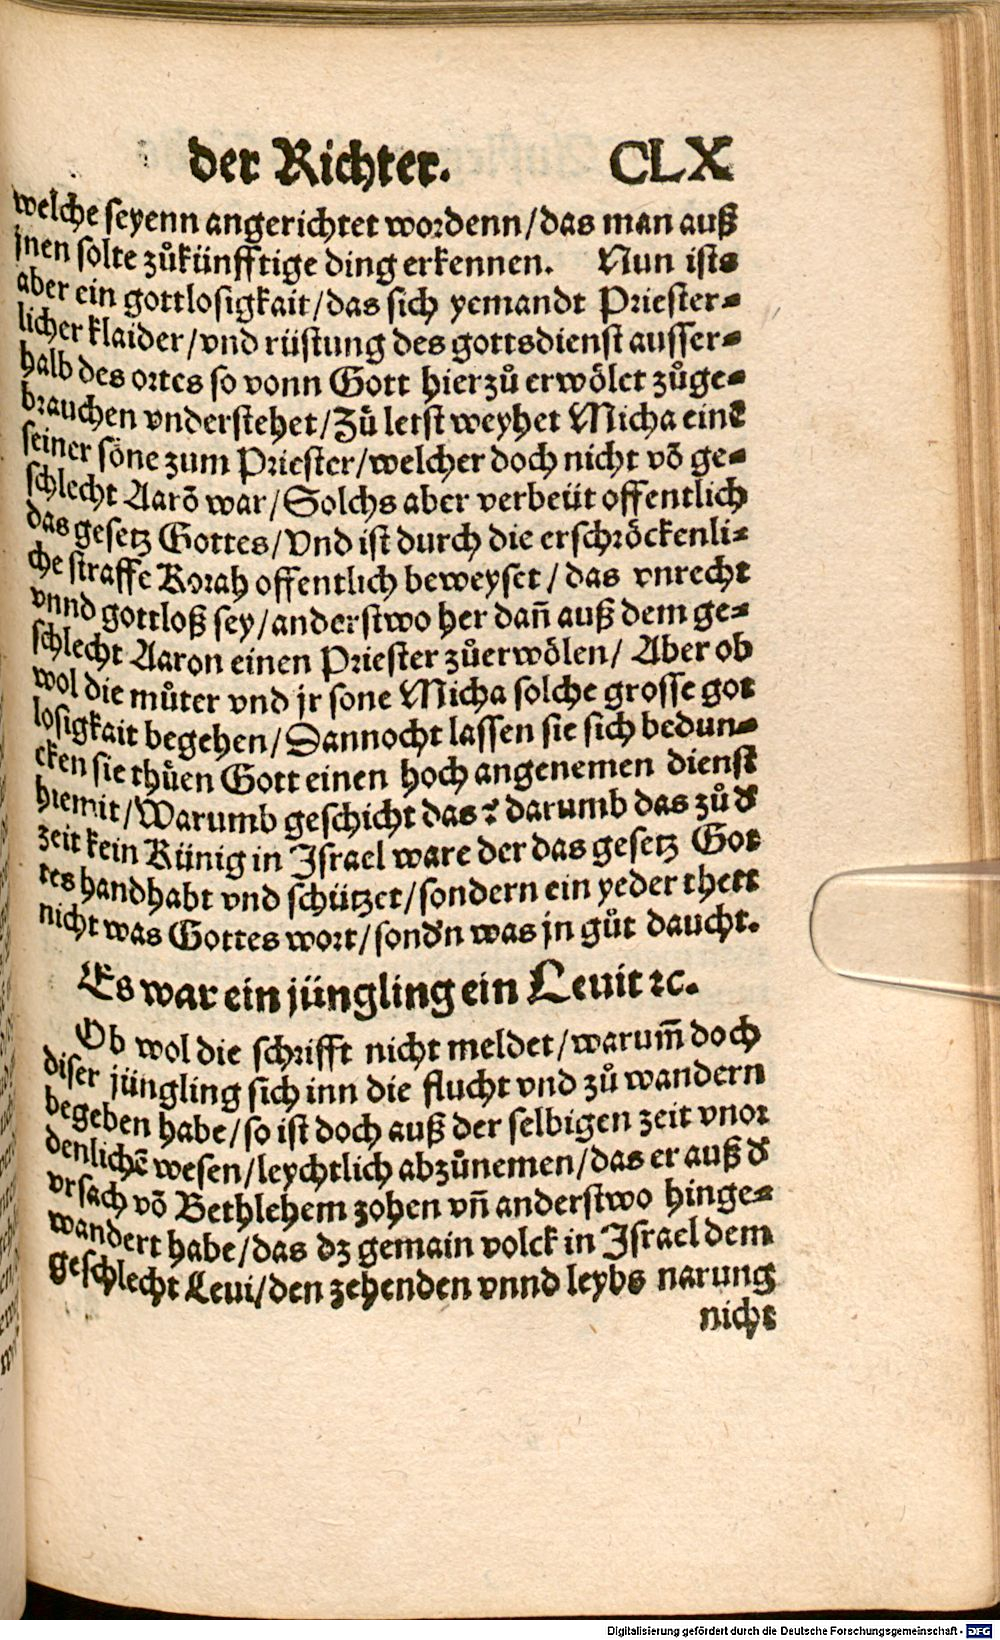 der Richter. CLX
welche seyenn angerichtet wordenn/das man auß
jnen solte zůkünfftige ding erkennen. Nun ists
aber ein gottlosigkait/das sich yemandt Priester-
licher klaider/vnd rüstung des gottsdienst ausser-
halb des ortes so vonn Gott hierzů erwölet zůge-
brauchen vnderstehet/Zů letst weyhet Micha einẽ
seiner söne zum Priester/welcher doch nicht võ ge-
schlecht Aarõ war/Solchs aber verbeüt offentlich
das gesetz Gottes/Vnd ist durch die erschröckenli-
che straffe Korah offentlich beweyset/das vnrecht
vnnd gottloß sey/anderstwo her dañ auß dem ge-
schlecht Aaron einen Priester zůerwölen/ Aber ob
wol die můter vnd jr sone Micha solche grosse got
losigkait begehen/Dannocht lassen sie sich bedun-
cken sie thüen Gott einen hoch angenemen dienst
hiemit/Warumb geschicht das? darumb das zů d̕
zeit kein Künig in Israel ware der das gesetz Got
tes handhabt vnd schützet/sondern ein yeder thett
nicht was Gottes wort/sond̕n was jn gůt daucht.
Es war ein jüngling ein Leuit ꝛc.
Ob wol die schrifft nicht meldet/warum̃ doch
diser jüngling sich inn die flucht vnd zů wandern
begeben habe/so ist doch auß der selbigen zeit vnor
denlichẽ wesen/leychtlich abzůnemen/das er auß d̕
vrsach võ Bethlehem zohen vñ anderstwo hinge-
wandert habe/das dz gemain volck in Israel dem
geschlecht Leui/den zehenden vnnd leybs narung
nicht
Digitalisierung gefördert durch die Deutsche Forschungsgemeinschaft - DFG